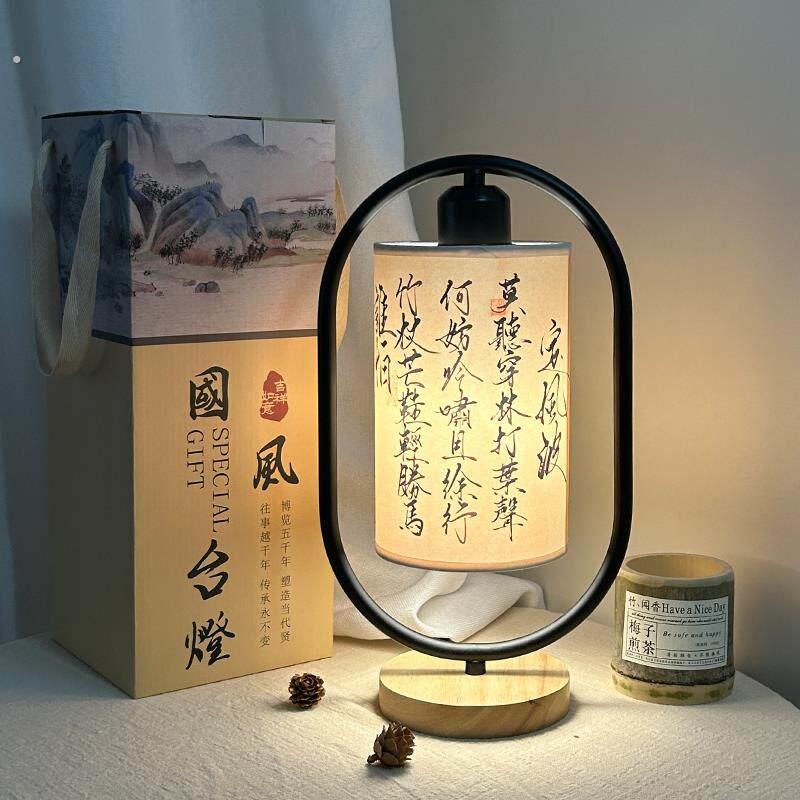 國風台燈
SPECIAL
GIFT
吉祥
如意
博览五千年 塑造当代贤
往事越千年 传承永不变
定風波
莫聽穿林打葉聲
何妨吟嘯且徐行
竹杖芒鞋輕勝馬
誰怕
竹、闻香 Have a Nice Day
梅子
煎茶
Be safe and happy